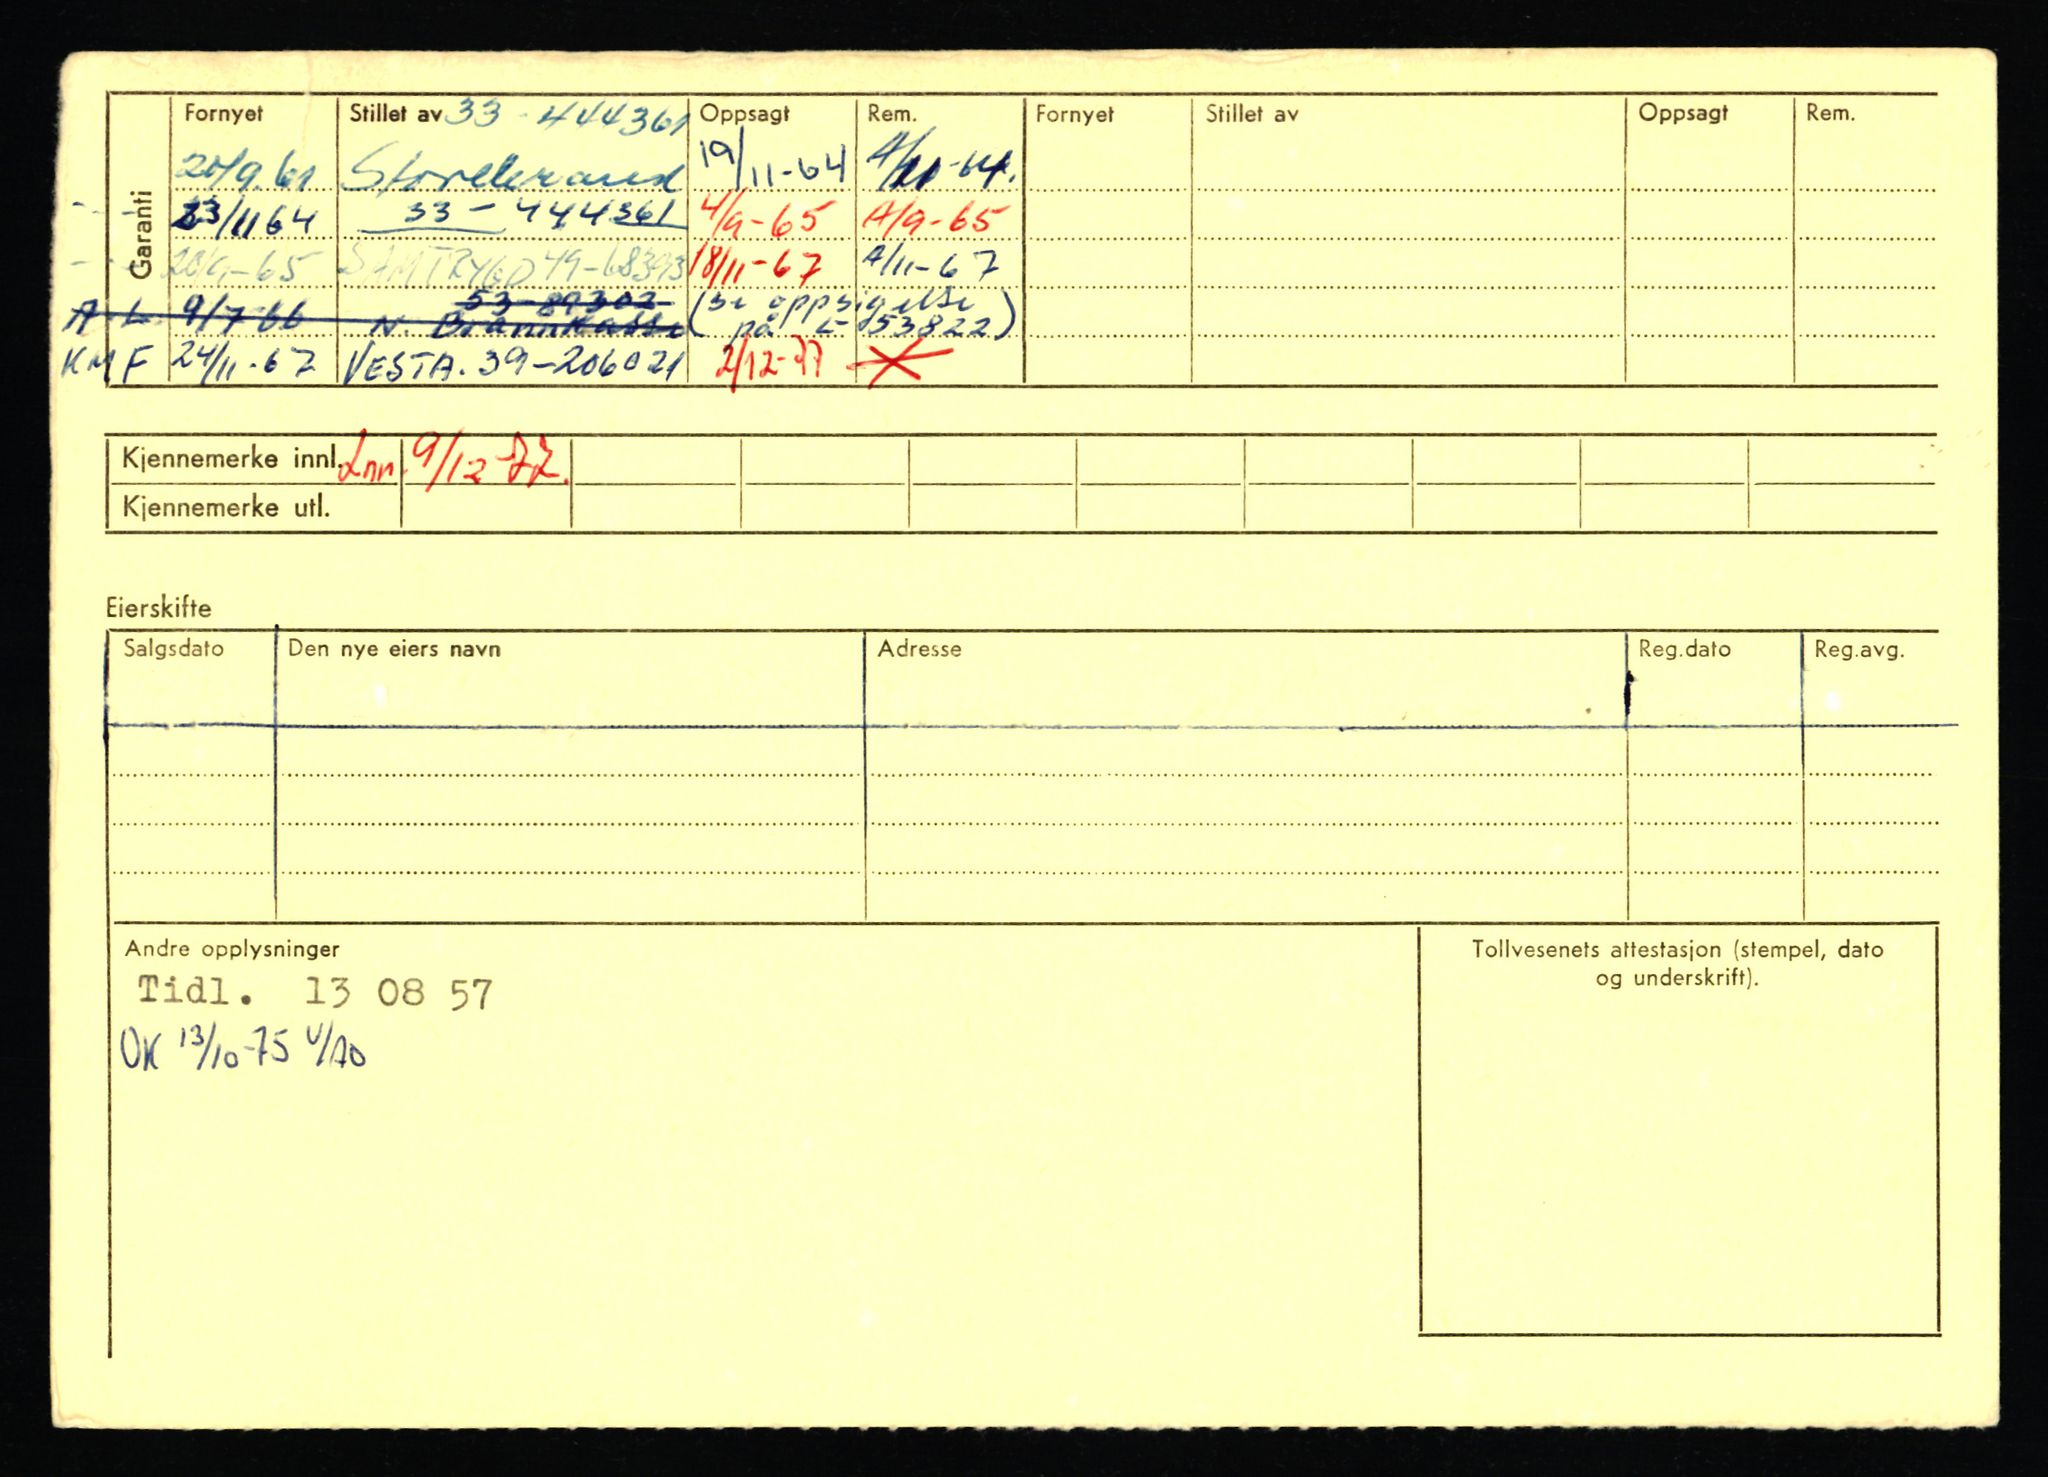 Garanti
Fornyet Stillet av 33-444361 Oppsagt Rem. Fornyet Stillet av Oppsagt Rem.
20/9.61 Storebrand 19/11-64 A/11-64.
23/11 64 33-444361 4/9-65 A/9-65
20/9-65 SAMTRYGD 49-68393 18/11-67 A/11-67
53-89302 (se oppsigelse
A L. 9/7-66 N. Brannkasse på L-53822)
KMF 24/11-67 VESTA. 39-206021 2/12-77
Kjennemerke innl. Inn. 9/12-77.
Kjennemerke utl.
Eierskifte
Salgsdato Den nye eiers navn Adresse Reg.dato Reg.avg.
Andre opplysninger
Tidl. 13 08 57
OK 13/10-75
Tollvesenets attestasjon (stempel, dato
og underskrift).